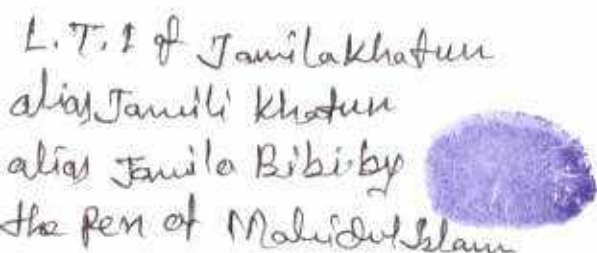 L.T.I of Jamila Khatun
alias Jamili Khatun
alias Jamila Bibi by
the Pen of Mahidul Islam